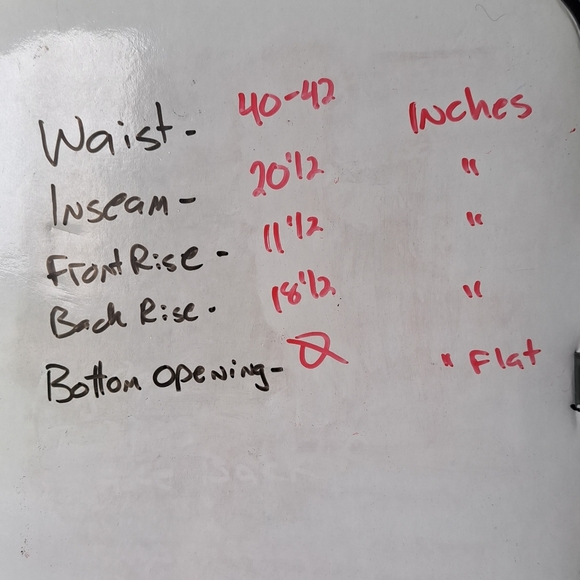 Waist - 40-42 Inches
Inseam - 20 1/2 "
Front Rise - 11 1/2 "
Back Rise - 18 1/2 "
Bottom Opening - " Flat